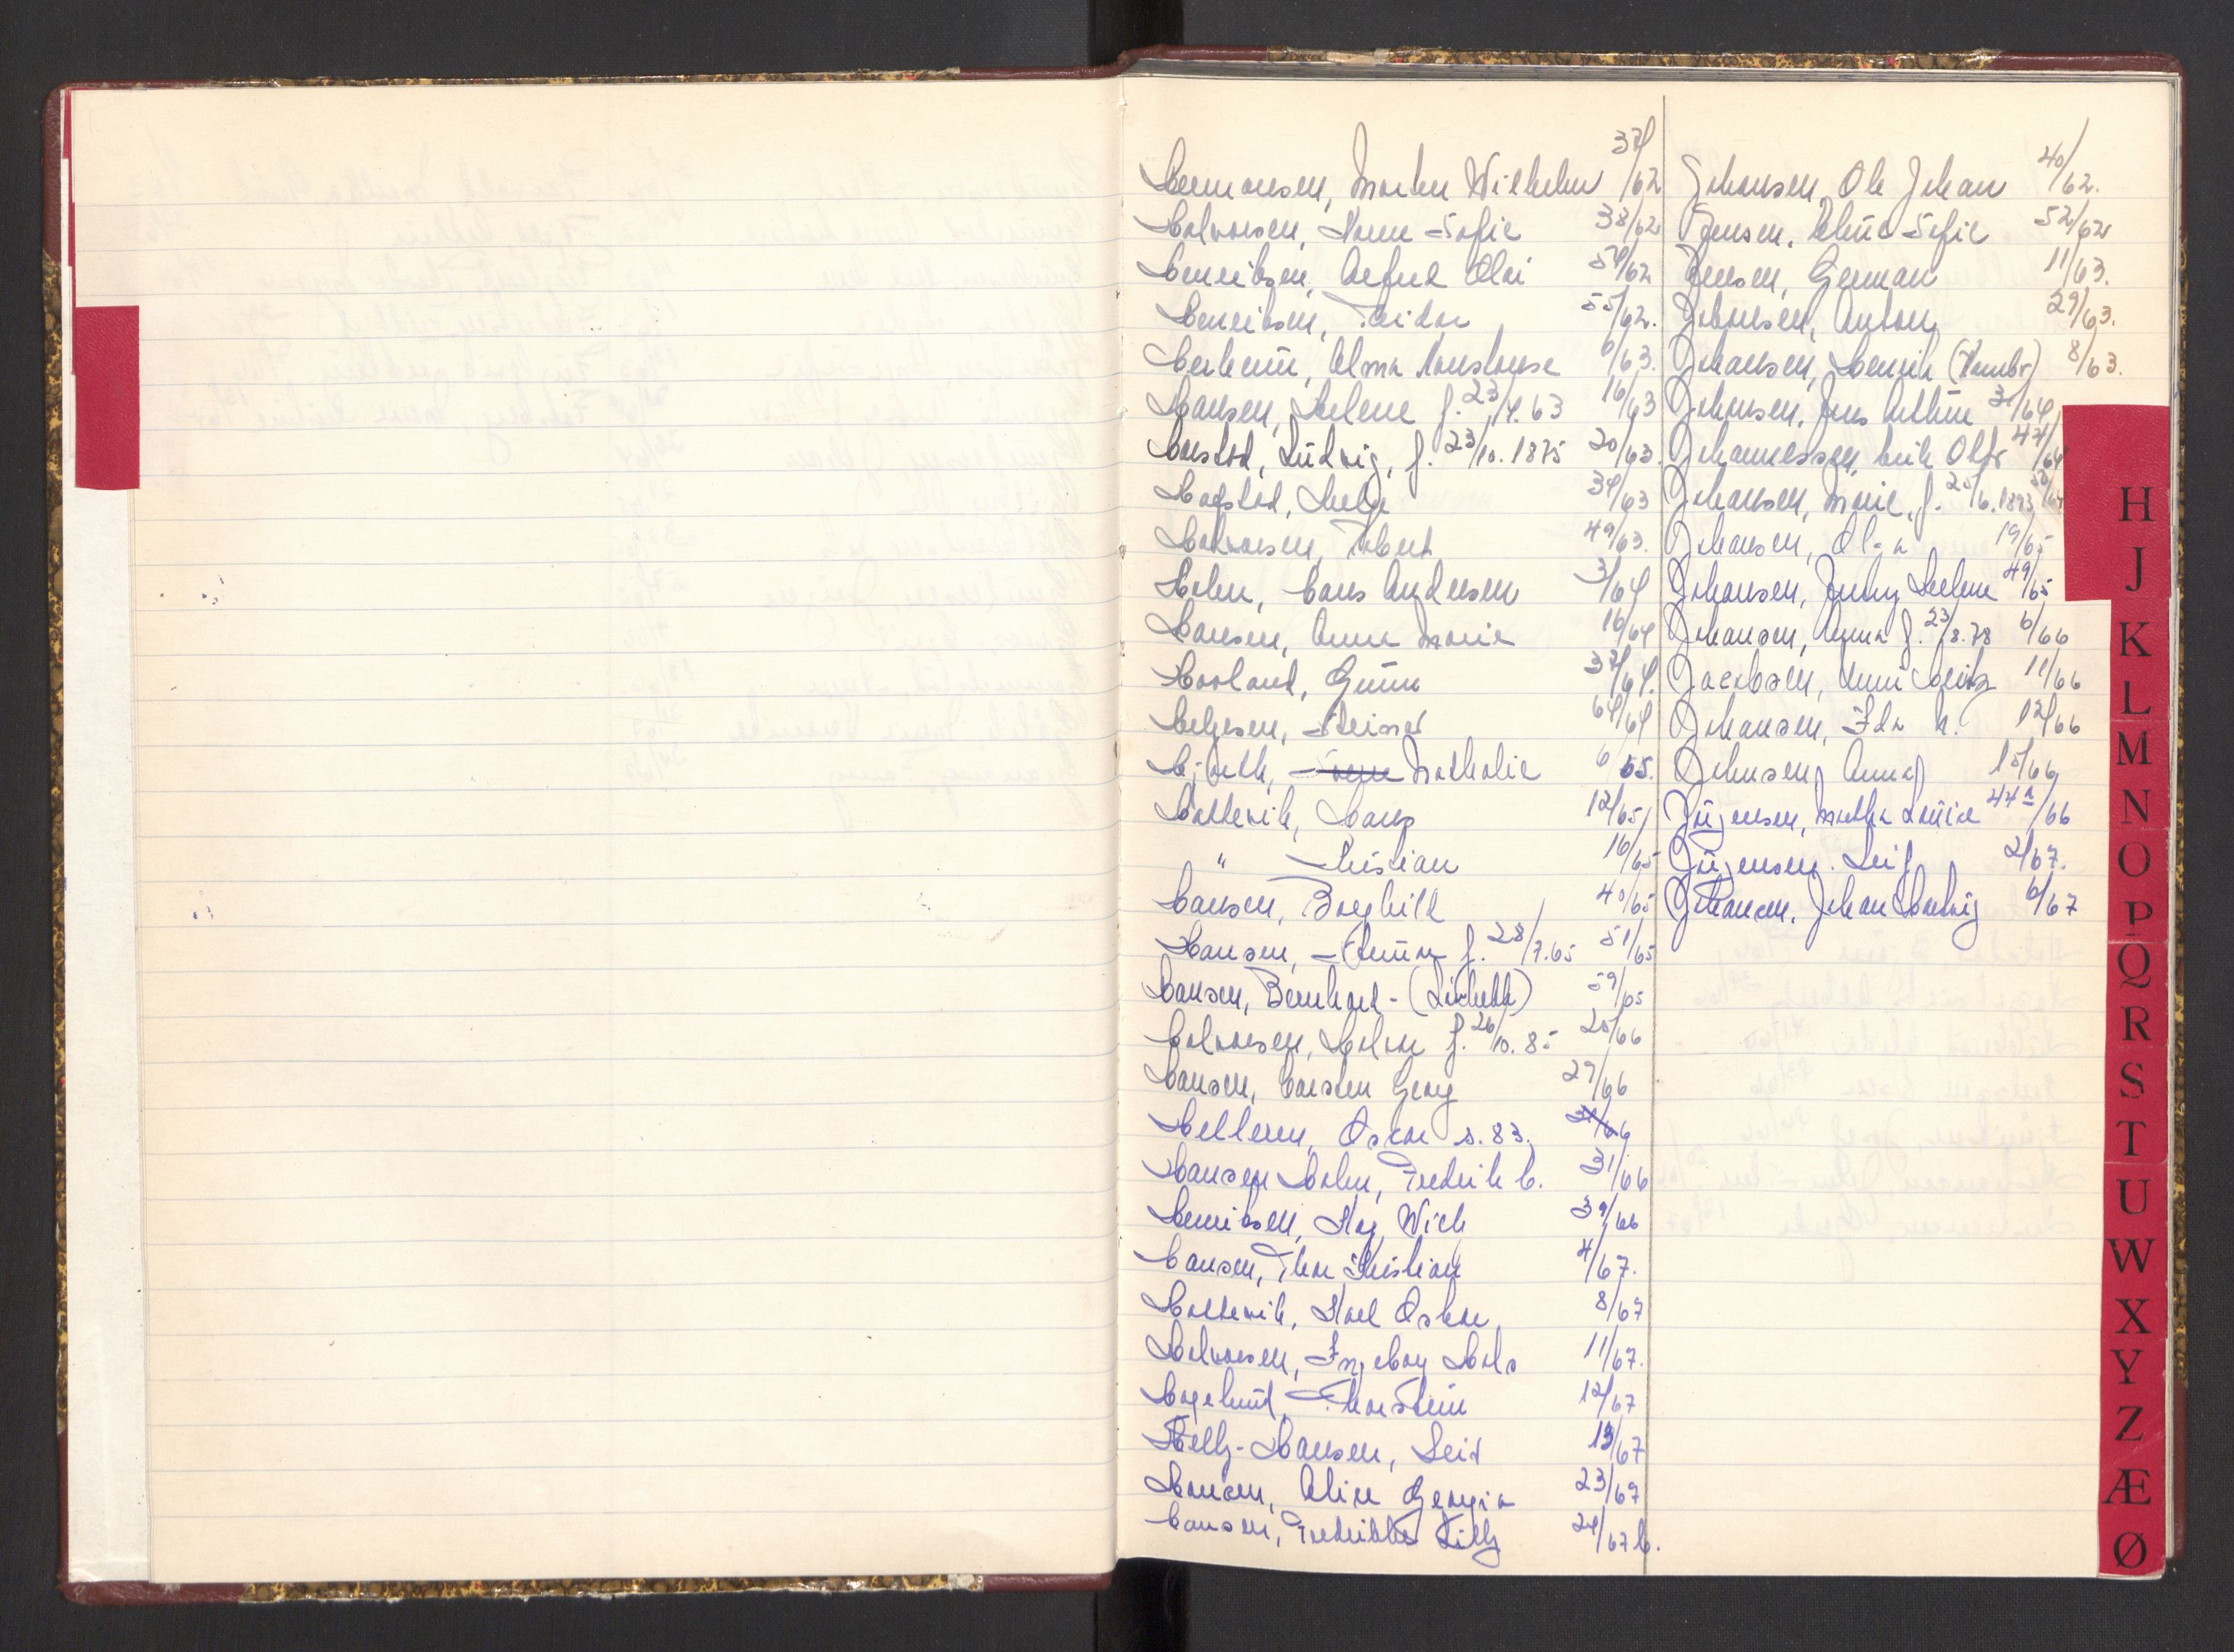 Hermansen, Morten Wilhelm 34/62
Halvorsen, Karen Sofie 38/62
Henriksen, Olai 54/62
Henriksen, Reidar 55/62.
Alma 6/63.
Hansen, Helene f. 23/4.63 16/63
Harstad, Ludvig, f. 23/10.1875 20/63.
Hagstad, Helge 34/63
Halvorsen, Robert 49/63.
Holm, Hans Andersen 3/64
Hansen, Anna Marie 16/64
Haaland, Gunn 37/64.
Helgesen, Steinar 64/64
Nathalie 6 65.
Hattevik, Hans 12/65
" Kristian 16/65
Hansen, Borghild 40/65
Hansen, f. 28/7.65 51/65
Hansen, Bernhard - 59/65
Halvorsen, Halvor f. 26/10.85 25/66
Hansen, Carsten Georg 29/66
Oscar s. 83.
Hansen Holm, Fredrik C. 31/66
Henriksen, Wich 39/66
Hansen, Thor Kristian 4/67.
Hattevik, Karl Oskar 8/67
Halvorsen, Ingeborg 11/67.
Hagelund, Thorstein 12/67
Kelly-Hansen, Leif 13/67
Hansen, Alice Georgia 23/67
Hansen, Fredrikke Lilly 24/67 b.
Johansen, Ole Johan 40/62.
Jensen, Sofie 52/62
Jensen, German 11/63.
Johansen, Anton 29/63.
Johansen, Henrik 8/63.
Johansen, Jens Arthur 3/64
Johannessen, Erik Olfr 44/64
Johansen, Marie, f. 25/6.1893
Johansen, Olga 19/65
Johansen, Jenny Helene 49/65
Johansen, Anna f. 23/8.78 6/66
Jacobsen, 11/66
Johansen, Ida H. 12/66
Johnsen, Anna 15/66
Jürgensen, Martha Louise 44a/66
Jürgensen. Leif 2/67.
Johansen. Johan Ludvig 6/67
H
J
K
L
M
N
O
P
Q
R
S
T
U
W
X
Y
Z
Æ
Ø